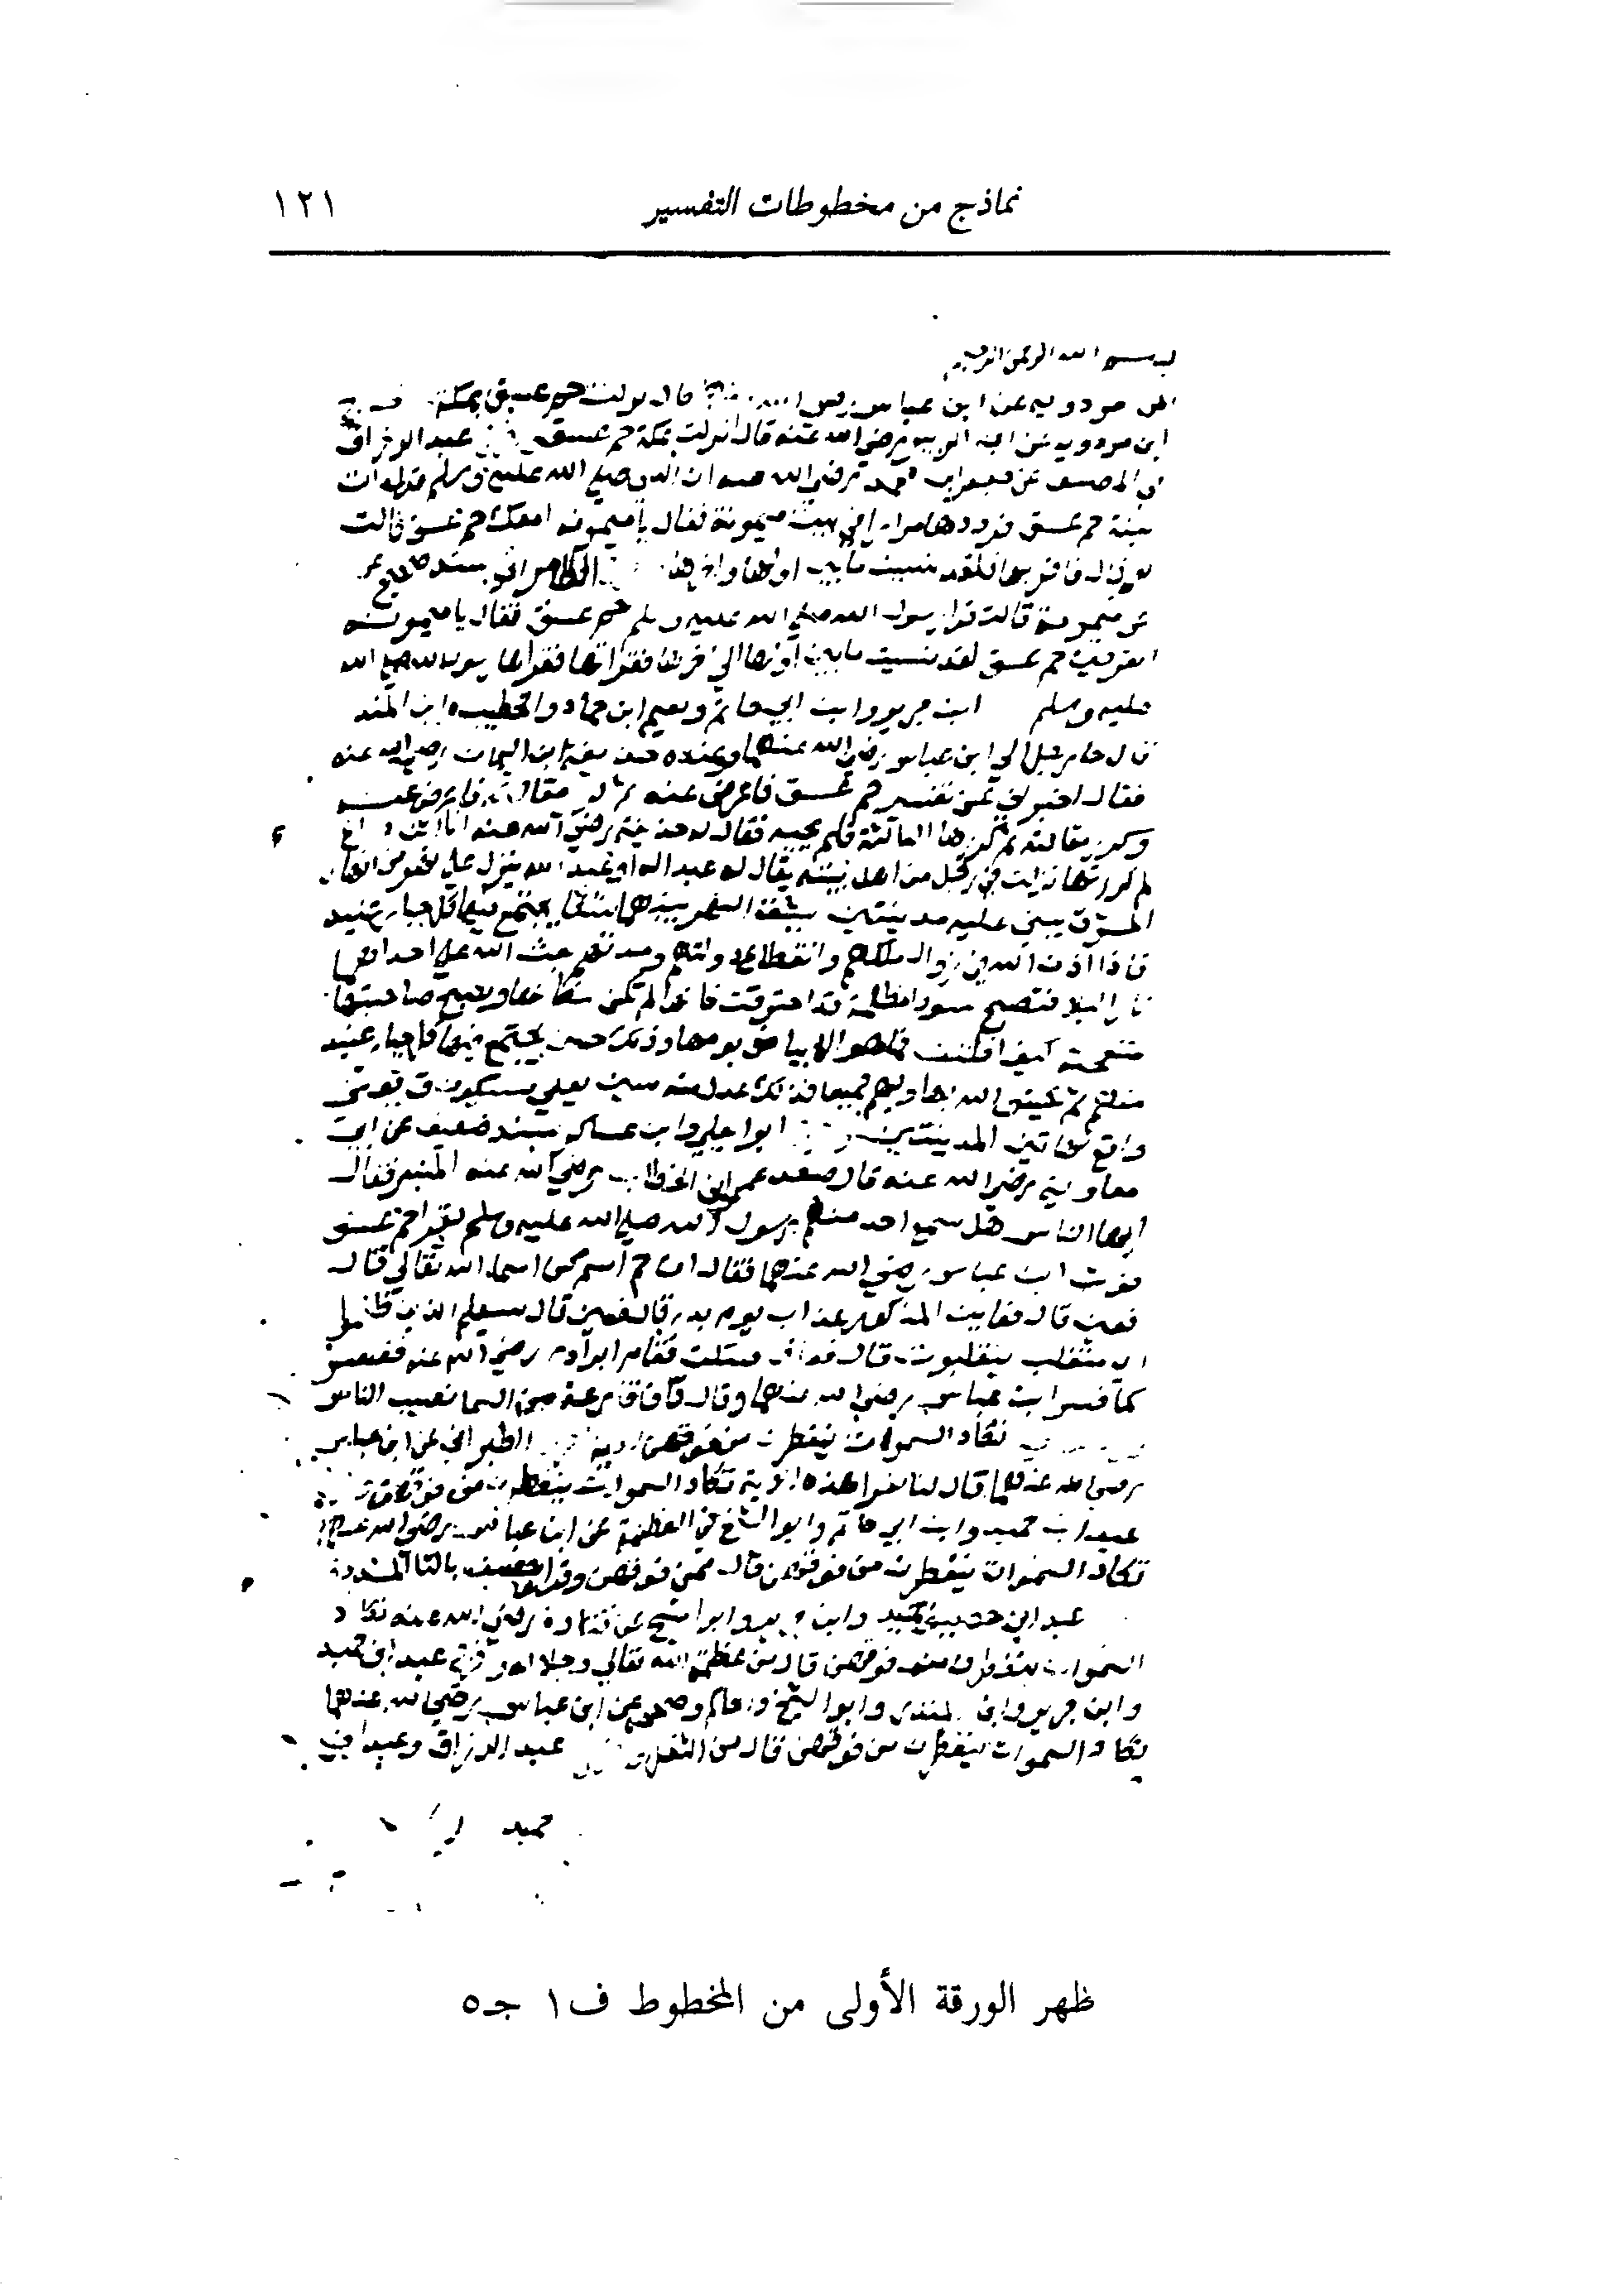 نماذج من مخطوطات التفسير ١٢١
بسم الله الرحمن الرحيم
ابن مردويه عن ابن عباس رضي الله عنهما قال نزلت حم عسق بمكة
ابن مردويه عن ابن الزبير رضي الله عنه قال انزلت بمكة حم عسق عبد الرزاق
في المصنف عن رضي الله عنه ان النبي صلى الله عليه وسلم
حم عسق فرددها مرارا في بيت ميمونة فقال يا ميمونه امعك حم عسق قالت
قال فاقريها فلقد نسيت ما بين اولها واخرها الطبراني بسند صحيح
عن ميمونة قالت قرا رسول الله صلى الله عليه وسلم حم عسق فقال يا ميمونه
اتعرفين حم عسق لقد نسيت ما بين اولها الى اخرها فقراتها فقراها رسول الله صلى الله
عليه وسلم ابن جرير وابن ابي حاتم ونعيم ابن حماد والخطيب
قال جا رجل الى ابن عباس رضي الله عنهما وعنده حذيفة ابن اليمان رضي الله عنه
فقال اخبرني عن تفسير حم عسق فاعرض عنه ثم
وكرر مقالته ثم كررها الثالثة فلم يجبه فقال له حذيفة رضي الله عنه انا
لم كررتها نزلت في رجل من اهل بيته يقال له عبد اله او عبد الله ينزل على نهر من انهار
المشرق يبني عليه مدينتين يشق النهر بينهما شقا يجتمع فيها كل جبار عنيد
فاذا اذن الله في زوال ملكهم وانقطاع دولتهم ومدتهم بعث الله على احداهما
نارا ليلا فتصبح سودا مظلمة قد احترقت كانها لم تكن مكانها وتصبح صاحبتها
متعجبة كيف افلتت فما هو الا بياض يومها وذلك حتى يجتمع فيها كل جبار عنيد
منهم ثم يخسف الله بها وبهم جميعا فذلك عدل منه سين يعني سيكون ق
واقع بهاتين المدينتين ابوا يعلى وابن عساكر بسند ضعيف عن ابي
معاوية رضي الله عنه قال صعد عمر ابن الخطاب رضي الله عنه المنبر فقال
ايها الناس هل سمع احد منكم رسول الله صلى الله عليه وسلم يقرا حم عسق
فوثب ابن عباس رضي الله عنهما فقال ان حم اسم من اسما الله تعالى قال
فعين قال عاين المذكور عذاب يوم بدر قال فسين قال سيعلم الذين ظلموا
اي منقلب ينقلبون قال فقاف فسكت فقام ابو ذر رضي الله عنه ففسر
كما فسر ابن عباس رضي الله عنهما وقال قاف قارعة من السما تصيب الناس
تكاد السموات يتفطرن من فوقهن الطبراني عن ابن عباس
رضي الله عنهما قال لنا نقرا هذه الاية تكاد السموات ينفطرن من فوقهن
عبد ابن حميد وابن ابي حاتم وابو الشيخ في العظمة عن ابن عباس رضي الله عنهما
تكاد السموات يتفطرن من فوقهن قال ممن فوقهن وقراها خصيف بالتا المشددة
عبد ابن حميد وابن جرير وابو الشيخ عن قتادة رضي الله عنه تكاد
السموات يتفطرن من فوقهن قال من عظمة الله تعالى وجلاله عبد ابن حميد
وابن جرير وابن المنذر وابو الشيخ والحاكم وصححه عن ابن عباس رضي الله عنهما
تكاد السموات يتفطرن من فوقهن قال من الثقل عبد الرزاق وعبد ابن
حميد
ظهر الورقة الأولى من المخطوط ف١ جـ٥